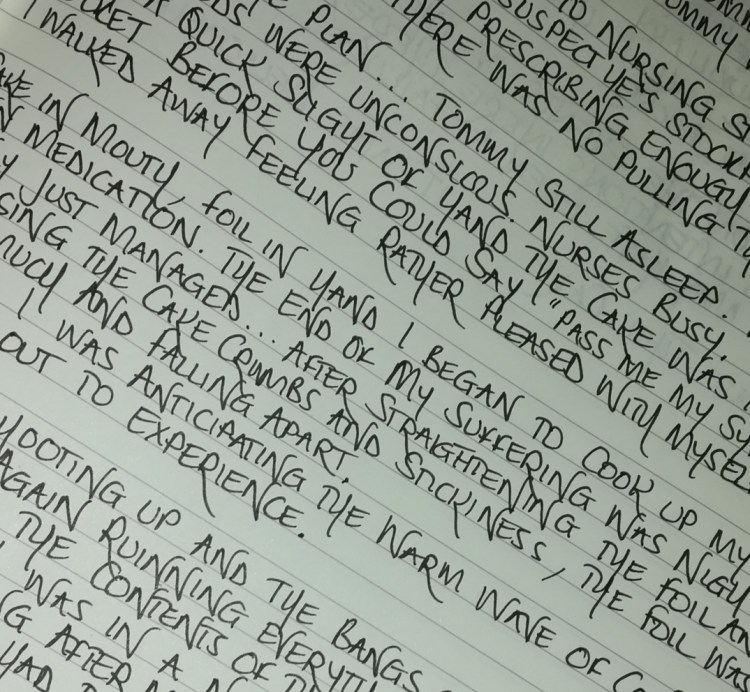 OMMY
TO NURSING S
SUSPECT HE'S STOCKP
PRESCRIBING ENOUGH
HERE WAS NO PULLING TH
E PLAN... TOMMY STILL ASLEEP.
DS' WERE UNCONSCIOUS. NURSES BUSY.
A QUICK SLIGHT OF HAND THE CAKE WAS
OCKET BEFORE YOU COULD SAY "PASS ME MY SU
I WALKED AWAY FEELING RATHER PLEASED WITH MYSEL
AKE IN MOUTH, FOIL IN HAND I BEGAN TO COOK UP MY
N MEDICATION. THE END OF MY SUFFERING WAS NIGH
Y JUST MANAGED... AFTER STRAIGHTENING THE FOIL AN
SING THE CAKE CRUMBS AND STICKINESS, THE FOIL WAS
MUCH AND FALLING APART.
I WAS ANTICIPATING THE WARM WAVE OF CO
OUT TO EXPERIENCE.
HOOTING UP AND THE BANGS
AGAIN RUINNING EVERYTH
THE CONTENTS OF
WAS IN A
G AFTER
HAD